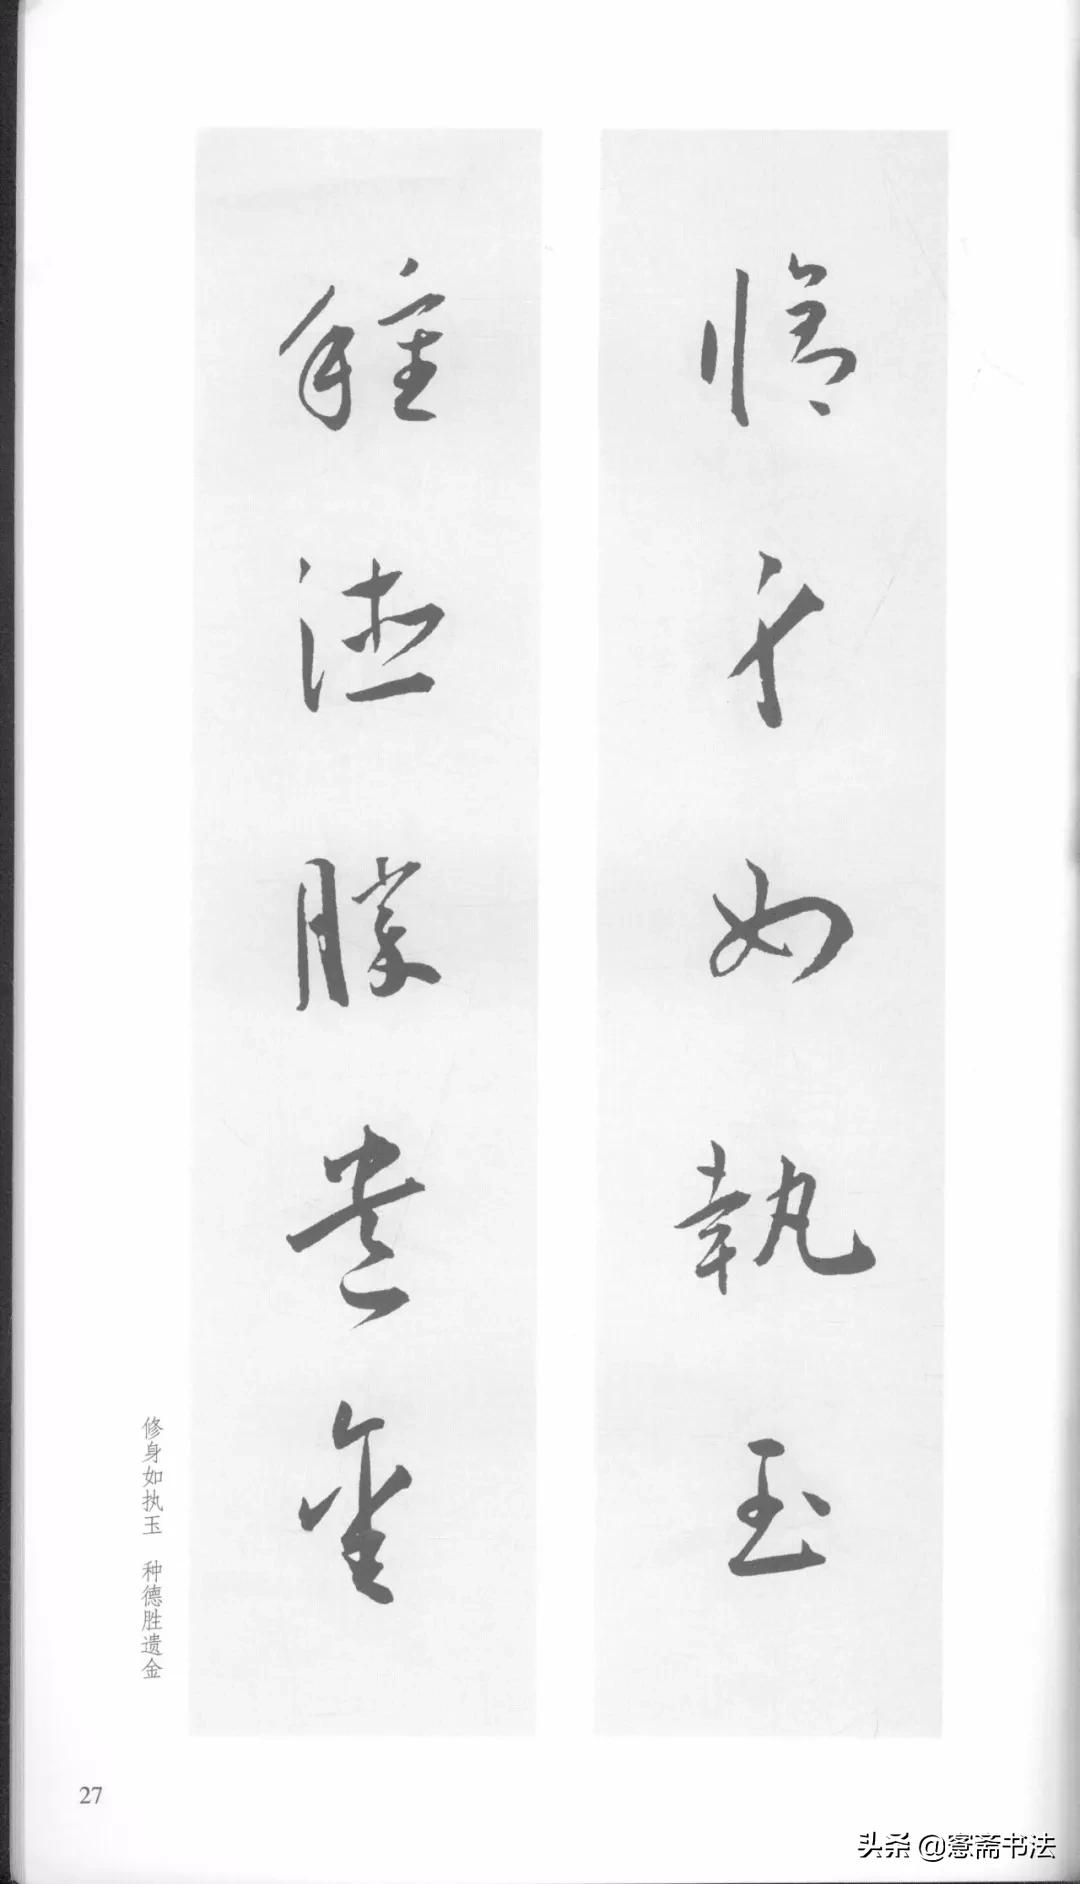 修身如執玉
種德勝遺金
修身如执玉 种德胜遗金
27
头条 @窓斋书法